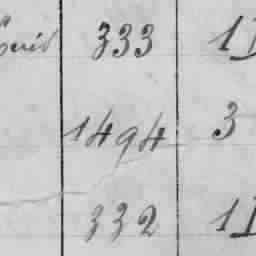 333 1
1494 3
332 1